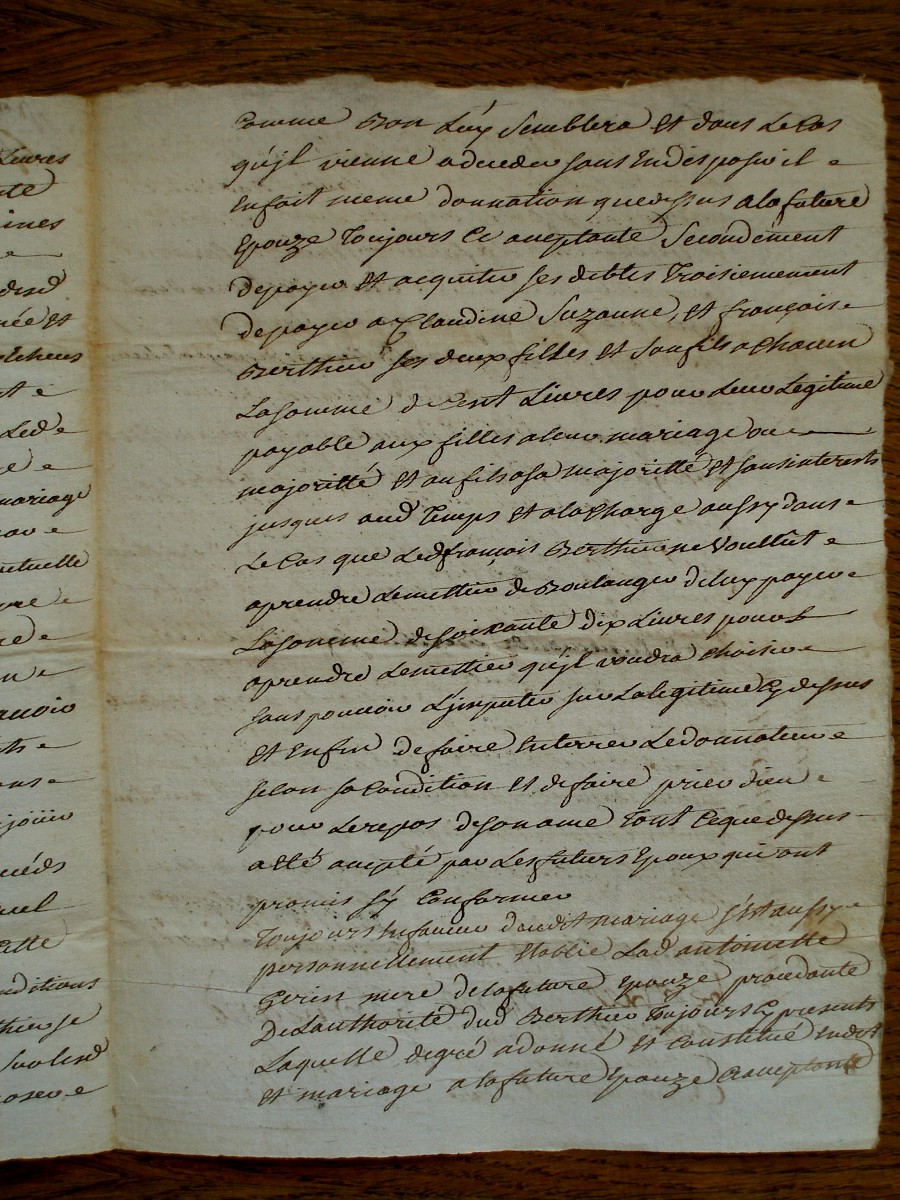 Livres
ute
ines
disd
née et
t
Led
e
mariage
utuelle
re
n
ns
jöüir
üel
Cette
nditions
comme Bon Lúy Semblera et dans Le Cas
qu'jl vienne a deceder sans En disposer il
En fait meme donnation que dessus a la future
Epouze Toujours Ce aceptante Secondement
de payer et acquiter ses debtes Troisiemement
de payer a Claudine Suzanne, et françoise
Berthier ses deux filles et Son fils a Chacun
La somme de Cent Livres pour Leur Legitime
payable aux filles a leur mariage ou
majoritté et au fils a sa majoritté et sans interests
jusques aud Temps et a la Charge aussy dans
Le Cas que Led françois Berthier ne Voullut
aprendre Le mettier de Boulanger de Luy payer
La somme de Soixante dix Livres pour
aprendre Le mettier qu'jl voudra Choisir
sans pouvoir L'jmputer sur La legitime Cy dessus
et Enfin de faire Enterrer Le donnateur
selon sa Condition et de faire prier dieu
pour Le repos de son ame Tout Ce que dessus
a Eté acepté par Les futurs Epoux qui ont
promis s'y Conformer
Toujours En faveur dudit mariage s'est aussy
personnellement Etablie Lad antoinette
Gerin mere de la future Epouze procedante
De L'authorité dud Berthier Toujours Cy presents
Laquelle de gré a donné et Constitué En dot
et mariage a la future Epouze Ce aceptante